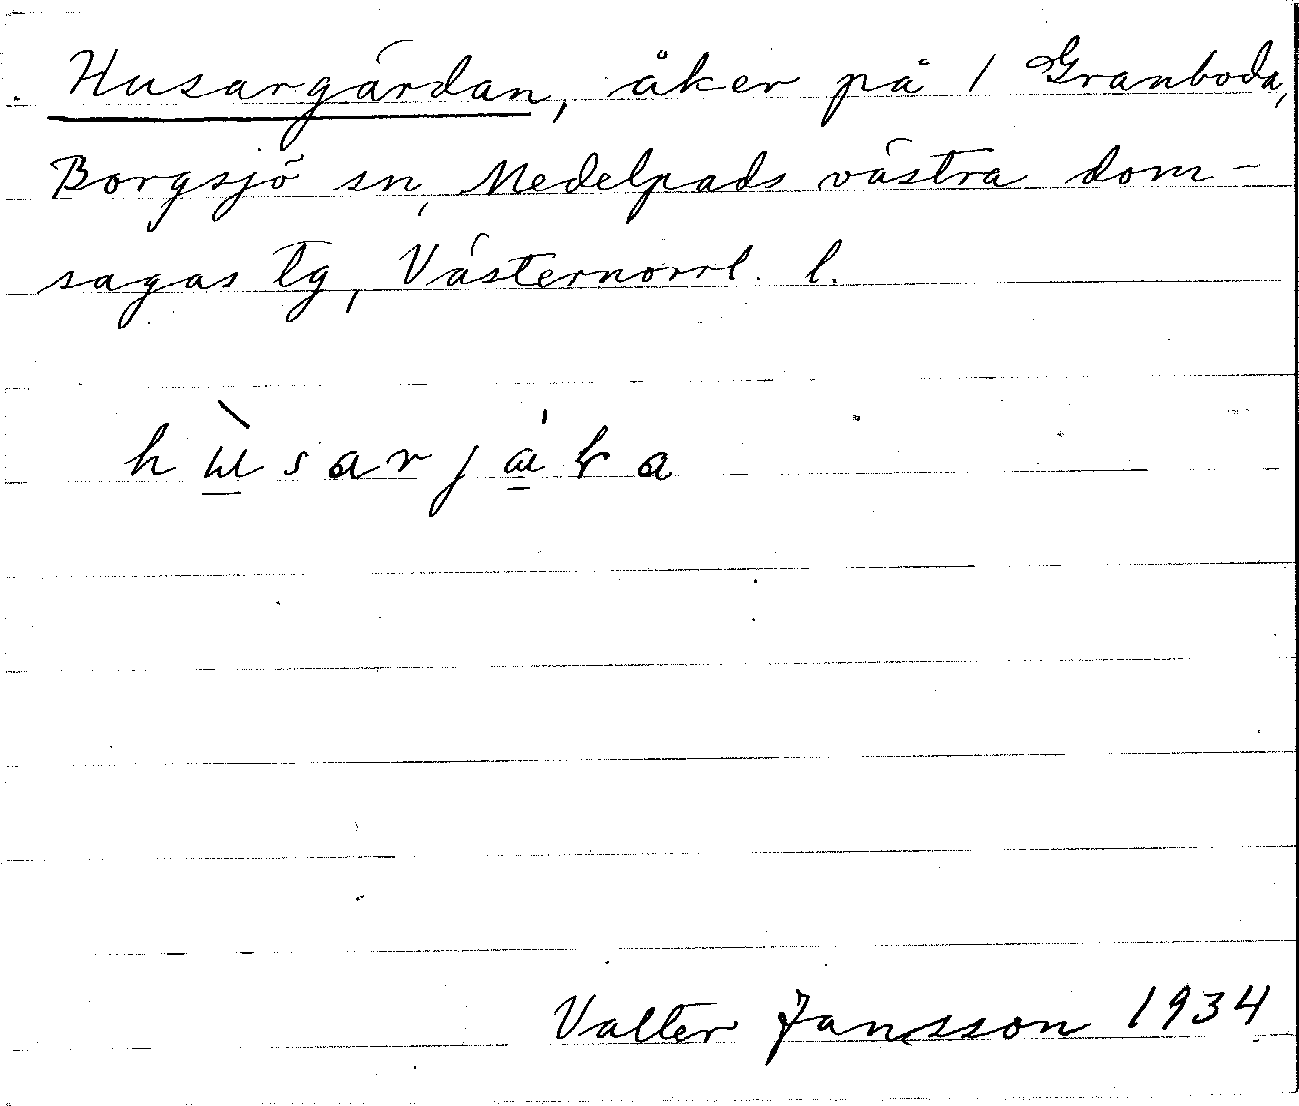 Husargärdan, åker på 1 Granboda,
Borgsjö sn, Medelpads västra dom-
sagas tg, Västernorrl. l.
Valter Jansson 1934